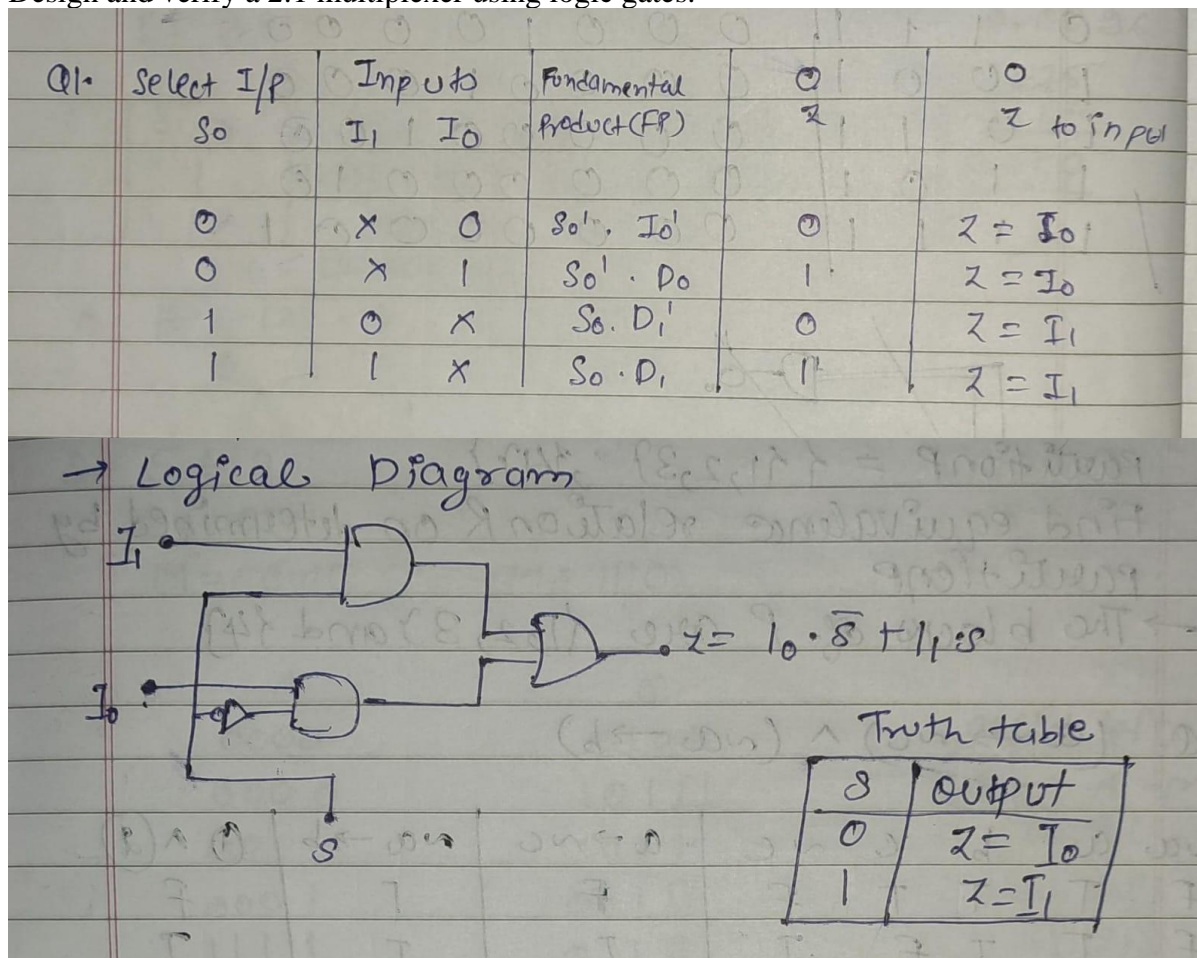 Design and verify a 2:1 multiplexer using logic gates.
Q1. Select I/P Inputs Fundamental O O
S0 I1 I0 Product (FP) Z Z to input
0 X 0 S0'. I0' 0 Z = I0
0 X 1 S0' . D0 1 Z = I0
1 0 X S0. D1' 0 Z = I1
1 1 X S0 . D1 1 Z = I1
→ Logical Diagram
I1
Z = I0 · S̅ + I1 · S
I0
Truth table
S Output
0 Z = I0
S
1 Z = I1